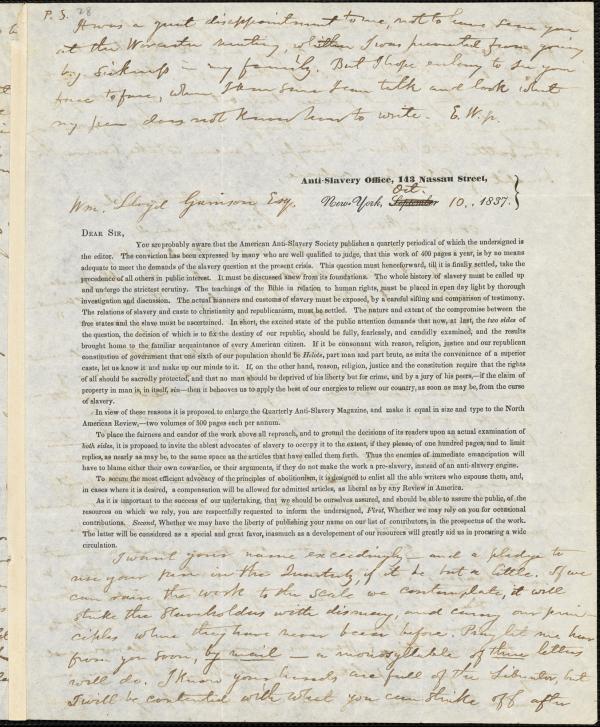 P. S. 28
It was a great disappointment to me, not to have seen you
at the Worcester meeting, whither I was prevented from going
by sickness in my family. But I hope ere long to see you
face to face, when I am sure I can talk and look what
my pen does not know how to write. E. W. jr.
Anti-Slavery Office, 143 Nassau Street,
Wm. Lloyd Garrison Esq. New-York, September Oct. 10, 1837.
Dear Sir,
You are probably aware that the American Anti-Slavery Society publishes a quarterly periodical of which the undersigned is
the editor. The conviction has been expressed by many who are well qualified to judge, that this work of 400 pages a year, is by no means
adequate to meet the demands of the slavery question at the present crisis. This question must henceforward, till it is finally settled, take the
precedence of all others in public interest. It must be discussed anew from its foundations. The whole history of slavery must be called up
and undergo the strictest scrutiny. The teachings of the Bible in relation to human rights, must be placed in open day light by thorough
investigation and discussion. The actual manners and customs of slavery must be exposed, by a careful sifting and comparison of testimony.
The relations of slavery and caste to christianity and republicanism, must be settled. The nature and extent of the compromise between the
free states and the slave must be ascertained. In short, the excited state of the public attention demands that now, at last, the two sides of
the question, the decision of which is to fix the destiny of our republic, should be fully, fearlessly, and candidly examined, and the results
brought home to the familiar acquaintance of every American citizen. If it be consonant with reason, religion, justice and our republican
constitution of government that one sixth of our population should be Helots, part man and part brute, as suits the convenience of a superior
caste, let us know it and make up our minds to it. If, on the other hand, reason, religion, justice and the constitution require that the rights
of all should be sacredly protected, and that no man should be deprived of his liberty but for crime, and by a jury of his peers,—if the claim of
property in man is, in itself, sin—then it behooves us to apply the best of our energies to relieve our country, as soon as may be, from the curse
of slavery.
In view of these reasons it is proposed to enlarge the Quarterly Anti-Slavery Magazine, and make it equal in size and type to the North
American Review,—two volumes of 500 pages each per annum.
To place the fairness and candor of the work above all reproach, and to ground the decisions of its readers upon an actual examination of
both sides, it is proposed to invite the ablest advocates of slavery to occupy it to the extent, if they please, of one hundred pages, and to limit
replies, as nearly as may be, to the same space as the articles that have called them forth. Thus the enemies of immediate emancipation will
have to blame either their own cowardice, or their arguments, if they do not make the work a pro-slavery, instead of an anti-slavery engine.
To secure the most efficient advocacy of the principles of abolitionism, it is designed to enlist all the able writers who espouse them, and,
in cases where it is desired, a compensation will be allowed for admitted articles, as liberal as by any Review in America.
As it is important to the success of our undertaking, that we should be ourselves assured, and should be able to assure the public, of the
resources on which we rely, you are respectfully requested to inform the undersigned, First, Whether we may rely on you for occasional
contributions. Second, Whether we may have the liberty of publishing your name on our list of contributors, in the prospectus of the work.
The latter will be considered as a special and great favor, inasmuch as a development of our resources will greatly aid us in procuring a wide
circulation.
I want your name exceedingly—and a pledge to
use your pen in the Quarterly, if it be but a little. If we
can raise the work to the scale we contemplate, it will
strike the slaveholders with dismay, and carry our prin
ciples where they have never been before. Pray let me hear
from you soon, by mail — a monosyllable of three letters
will do. I know your hands are full of the Liberator, but
I will be contented with what you can strike off after